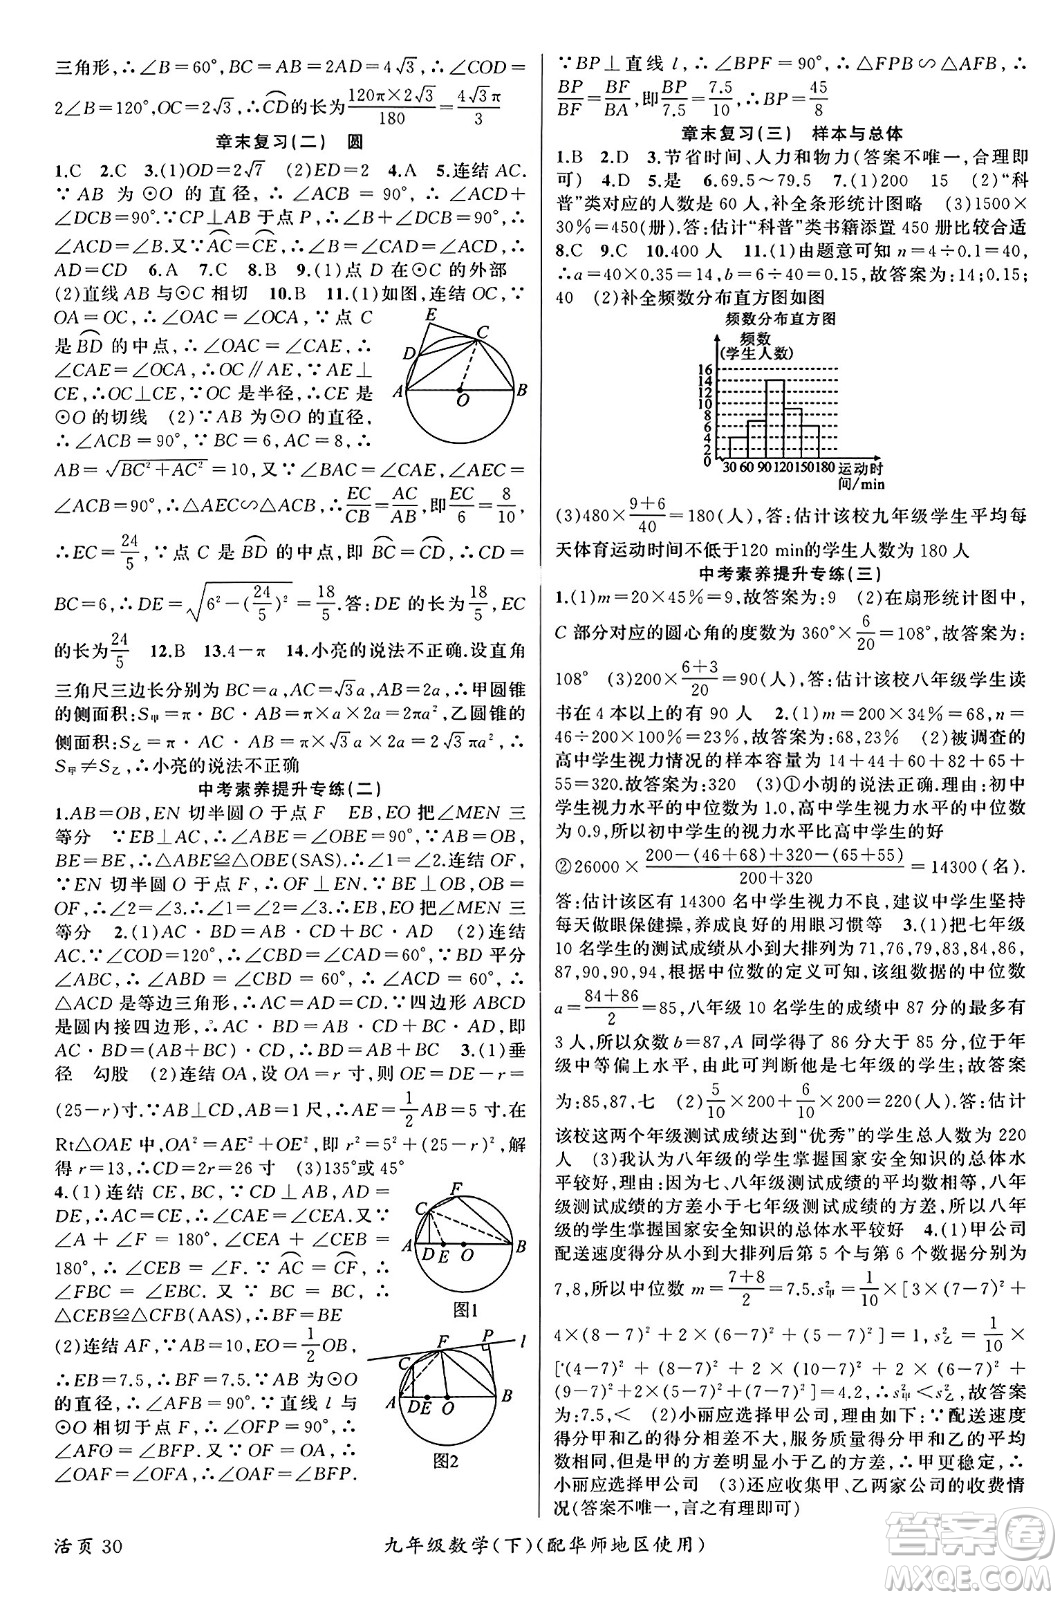 三角形,∴∠B=60°,BC=AB=2AD=4√3,∴∠COD=
2∠B=120°,OC=2√3,∴⌒CD的长为120π×2√3/180=4√3π/3
章末复习(二) 圆
1.C 2.C 3.(1)OD=2√7 (2)ED=2 4.A 5.连结 AC.
∵AB 为⊙O 的直径,∴∠ACB=90°,∴∠ACD+
∠DCB=90°.∵CP⊥AB于点P,∴∠A+∠ACP=90°,
∴∠ACD=∠B.又∵⌒AC=⌒CE,∴∠B=∠CAD=∠ACD,∴
AD=CD 6.A 7.C 8.B 9.(1)点 D 在⊙C 的外部
(2)直线 AB 与⊙C 相切 10.B 11.(1)如图,连结 OC,∵
OA=OC,∴∠OAC=∠OCA,∵点 C
是⌒BD的中点,∴∠OAC=∠CAE,∴
∠CAE=∠OCA,∴OC∥AE,∵AE⊥
CE,∴OC⊥CE,∵OC是半径,∴CE 是
⊙O 的切线 (2)∵AB 为⊙O 的直径,
∴∠ACB=90°,∵BC=6,AC=8,∴
AB=√(BC²+AC²)=10,又∵∠BAC=∠CAE,∠AEC=
∠ACB=90°,∴△AEC∽△ACB,∴EC/CB=AC/AB,即EC/6=8/10,
∴EC=24/5,∵点 C 是⌒BD的中点,即⌒BC=⌒CD,∴CD=
BC=6,∴DE=√(6²-(24/5)²)=18/5.答:DE的长为18/5,EC
的长为24/5 12.B 13.4-π 14.小亮的说法不正确.设直角
三角尺三边长分别为 BC=a,AC=√3a,AB=2a,∴甲圆锥
的侧面积:S甲=π·BC·AB=π×a×2a=2πa²,乙圆锥的
侧面积:S乙=π·AC·AB=π×√3a×2a=2√3πa²,∴
S甲≠S乙,∴小亮的说法不正确
中考素养提升专练(二)
1.AB=OB,EN 切半圆 O 于点 F EB,EO 把∠MEN 三
等分 ∵EB⊥AC,∴∠ABE=∠OBE=90°,∵AB=OB,
BE=BE,∴△ABE≌△OBE(SAS).∴∠1=∠2.连结 OF,
∵EN 切半圆 O 于点 F,∴OF⊥EF,∵BE⊥OB,OB=
OF,∴∠2=∠3.∴∠1=∠2=∠3,EB,EO 把∠MEN 三
等分 2.(1)AC·BD=AB·CD+BC·AD (2)连结
AC.∵∠COD=120°,∴∠CBD=∠CAD=60°,∵BD 平分
∠ABC,∴∠ABD=∠CBD=60°,∴∠ACD=60°,∴
△ACD 是等边三角形,∴AC=AD=CD,∵四边形 ABCD
是圆内接四边形,∴AC·BD=AB·CD+BC·AD,即
AC·BD=AB·AC+BC·AC,∴BD=AB+BC 3.(1)垂
径 勾股 (2)连结 OA,设 OA=OD=r 寸,则 OE=DE-r=
(25-r)寸.∵AB⊥CD,AB=1 尺,∴AE=1/2AB=5 寸.在
Rt△OAE 中,OA²=AE²+OE²,即 r²=5²+(25-r)²,解
得 r=13,∴CD=2r=26 寸 (3)135°或 45°
4.(1)连结 CE,BC,∵CD⊥AB,AD=
DE,∴CA=CE,∴∠A=∠CEA.又∵
∠A+∠CFB=180°,∠CEA+∠CEB=
180°,∴∠CEB=∠CFB.∵⌒AC=⌒CF,∴
∠FBC=∠EBC.又∵BC=BC,∴
△CEB≌△CFB(AAS),∴BF=BE
(2)连结 AF,∵AB=10,EO=1/2OB,
∴EB=7.5,∴BF=7.5.∵AB是⊙O 的直
径,∴∠AFB=90°.∵直线 l 与
⊙O相切于点 F,∴∠OFP=90°,∴
∠AFO=∠BFP.∵OA=OF,∴
∠OAF=∠OFA,∴∠OAF=∠BFP.
E C D A O B
图1
F C A D E O B
图2
F P l C A D E O B
∵BP⊥直线 l,∴∠BPF=90°,∴△FPB∽△AFB,∴
BP/BF=BF/BA,即BP/7.5=7.5/10,∴BP=45/8
章末复习(三) 样本与总体
1.B 2.D 3.节省时间、人力和物力(答案不唯一,合理即
可) 4.D 5.是 6.69.5～79.5 7.(1)200 15 (2)“科
普”类对应的人数是 60 人,补全条形统计图略 (3)1500×
30%=450(册).答:估计“科普”类书籍添置 450 册比较合适
8.C 9.C 10.400 人 11.(1)由题意可知 n=4÷0.1=40,
∴a=40×0.35=14,b=6÷40=0.15,故答案为:14;0.15;
40 (2)补全频数分布直方图如图
频数分布直方图
频数
(学生人数)
16
14
12
10
8
6
4
2
0
30 60 90 120 150 180 运动时
间/min
(3)480×(9+6)/40=180(人),答:估计该校九年级学生平均每
天体育运动时间不低于120 min的学生人数为 180 人
中考素养提升专练(三)
1.(1)m=20×45%=9,故答案为:9 (2)在扇形统计图中,
C 部分对应的圆心角的度数为 360°×6/20=108°,故答案为:
108° (3)200×(6+3)/20=90(人),答:估计该校八年级学生读
书在 4 本以上的有 90 人 2.(1)m=200×34%=68,n=
46÷200=23%,故答案为:68,23% (2)被调查的
高中学生视力情况的样本容量为 14+44+60+82+65+
55=320.故答案为:320 (3)①小胡的说法正确.理由:初中
学生视力水平的中位数为 1.0,高中学生视力水平的中位数
为 0.9,所以初中学生的视力水平比高中学生的好
②26000×(200-(46+68)+320-(65+55))/(200+320)=14300(名).
答:估计该区有 14300 名中学生视力不良,建议中学生坚持
每天做眼保健操,养成良好的用眼习惯等 3.(1)把七年级
10 名学生的测试成绩从小到大排列为 71,76,79,83,84,86,
87,90,90,96,根据中位数的定义可知,该组数据的中位数
a=(84+86)/2=85,八年级 10 名学生的成绩中 87 分的最多有
3 人,所以众数 b=87,A 同学得了 86 分大于 85 分,位于年
级中等偏上水平,由此可判断他是七年级的学生;故答案
为:85,87,七 (2)5/10×200+6/10×200=220(人),答:估计
该校这两个年级测试成绩达到“优秀”的学生总人数为 220
人 (3)我认为八年级的学生掌握国家安全知识的总体水
平较好,∵七、八年级测试成绩的平均数相等,八年
级测试成绩的方差小于七年级测试成绩的方差,所以八年
级的学生掌握国家安全知识的总体水平较好 4.(1)甲公司
配送速度得分从小到大排列后第 5 个与第 6 个数据分别为
7,8,所以中位数 m=(7+8)/2=7.5.s²甲=1/10×[3×(7-7)²+
4×(8-7)²+2×(6-7)²+(5-7)²]=1,s²乙=1/10×
[(4-7)²+(8-7)²+2×(10-7)²+2×(6-7)²+
(9-7)²+2×(5-7)²+(7-7)²]=4.2,∴s²甲<s²乙,故答案
为:7.5,< (2)小丽应选择甲公司,理由如下:∵配送速度
得分甲和乙的得分相差不大,服务质量得分甲和乙的平均
数相同,但是甲的方差明显小于乙的方差,∴甲更稳定,∴
小丽应选择甲公司 (3)还应收集甲、乙两家公司的收费情
况(答案不唯一,言之有理即可)
活页 30
九年级数学(下)(配华师地区使用)
答案圈
MXQE.COM